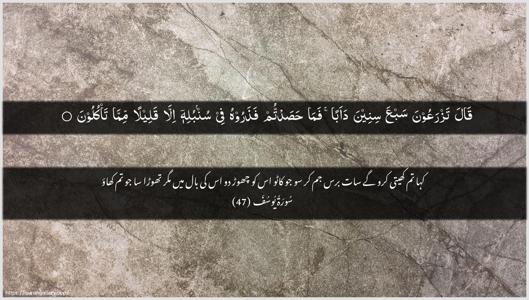 قَالَ تَزْرَعُوْنَ سَبْعَ سِنِيْنَ دَاَبًا ۚ فَمَا حَصَدْتُّمْ فَذَرُوْهُ فِيْ سُنْۢبُلِهٖٓ اِلَّا قَلِيْلًا مِّمَّا تَاْكُلُوْنَ ○
کہا تم کھیتی کرو گے سات برس جم کر سو جو کاٹو اس کو چھوڑ دو اس کی بال میں مگر تھوڑا سا جو تم کھاؤ
سُوْرَةُ يُوْسُف (47)